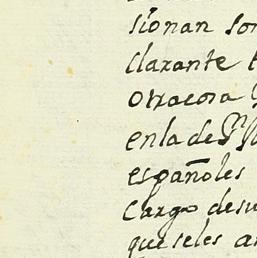 sionan son
clarante
Otra cosa
en la de
españoles
Cargo desu
que seles an